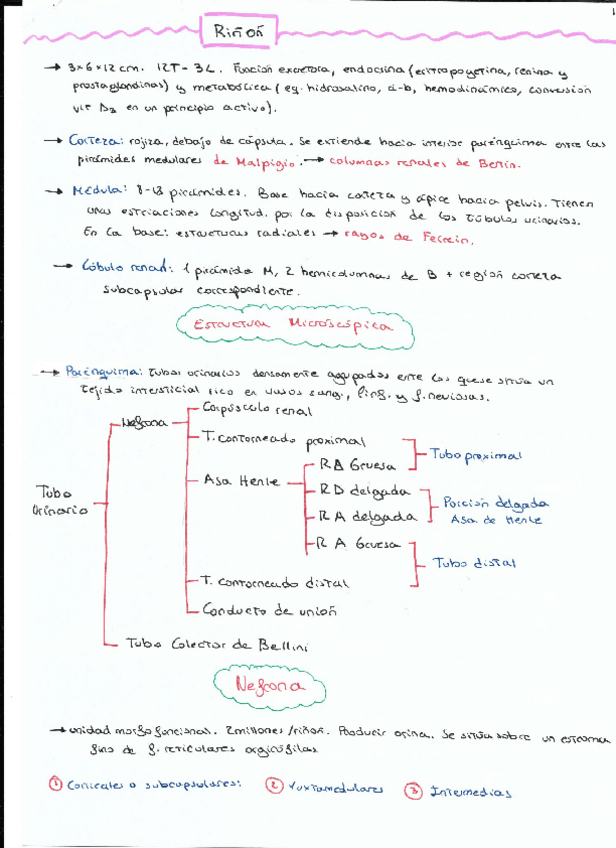 Riñón
→ 3x6x12 cm. 12T-3L. Función excretora, endocrina (eritropoyetina, renina y
prostaglandinas) y metabólica (eq. hidrosalino, a-b, hemodinámico, conversión
vit D3 en un principio activo).
→ Corteza: rojiza, debajo de cápsula. Se extiende hacia interior parénquima entre las
pirámides medulares de Malpigio. → columnas renales de Bertin.
→ Médula: 8-18 pirámides. Base hacia corteza y ápice hacia pelvis. Tienen
unas estriaciones longitud. por la disposición de los túbulos urinarios.
En la base: estructuras radiales → rayos de Ferrein.
→ Lóbulo renal: 1 pirámide M, 2 hemicolumnas de B + región corteza
subcapsular correspondiente.
Estructura Microscópica
→ Parénquima: Tubos urinarios densamente agrupados entre los que se sitúa un
tejido intersticial rico en vasos sang., linf. y f. nerviosas.
Tubo Urinario
Nefrona
Corpúsculo renal
T. contorneado proximal
Asa Henle
RD Gruesa
Tubo proximal
RD delgada
RA delgada
Porción delgada
Asa de Henle
RA Gruesa
T. contorneado distal
Tubo distal
Conducto de unión
Tubo Colector de Bellini
Nefrona
→ unidad morfofuncional. 2millones/riñón. Producir orina. Se sitúa sobre un estroma
fino de f. reticulares argirófilas
① Corticales o subcapsulares: ② Yuxtamedulares ③ Intermedias